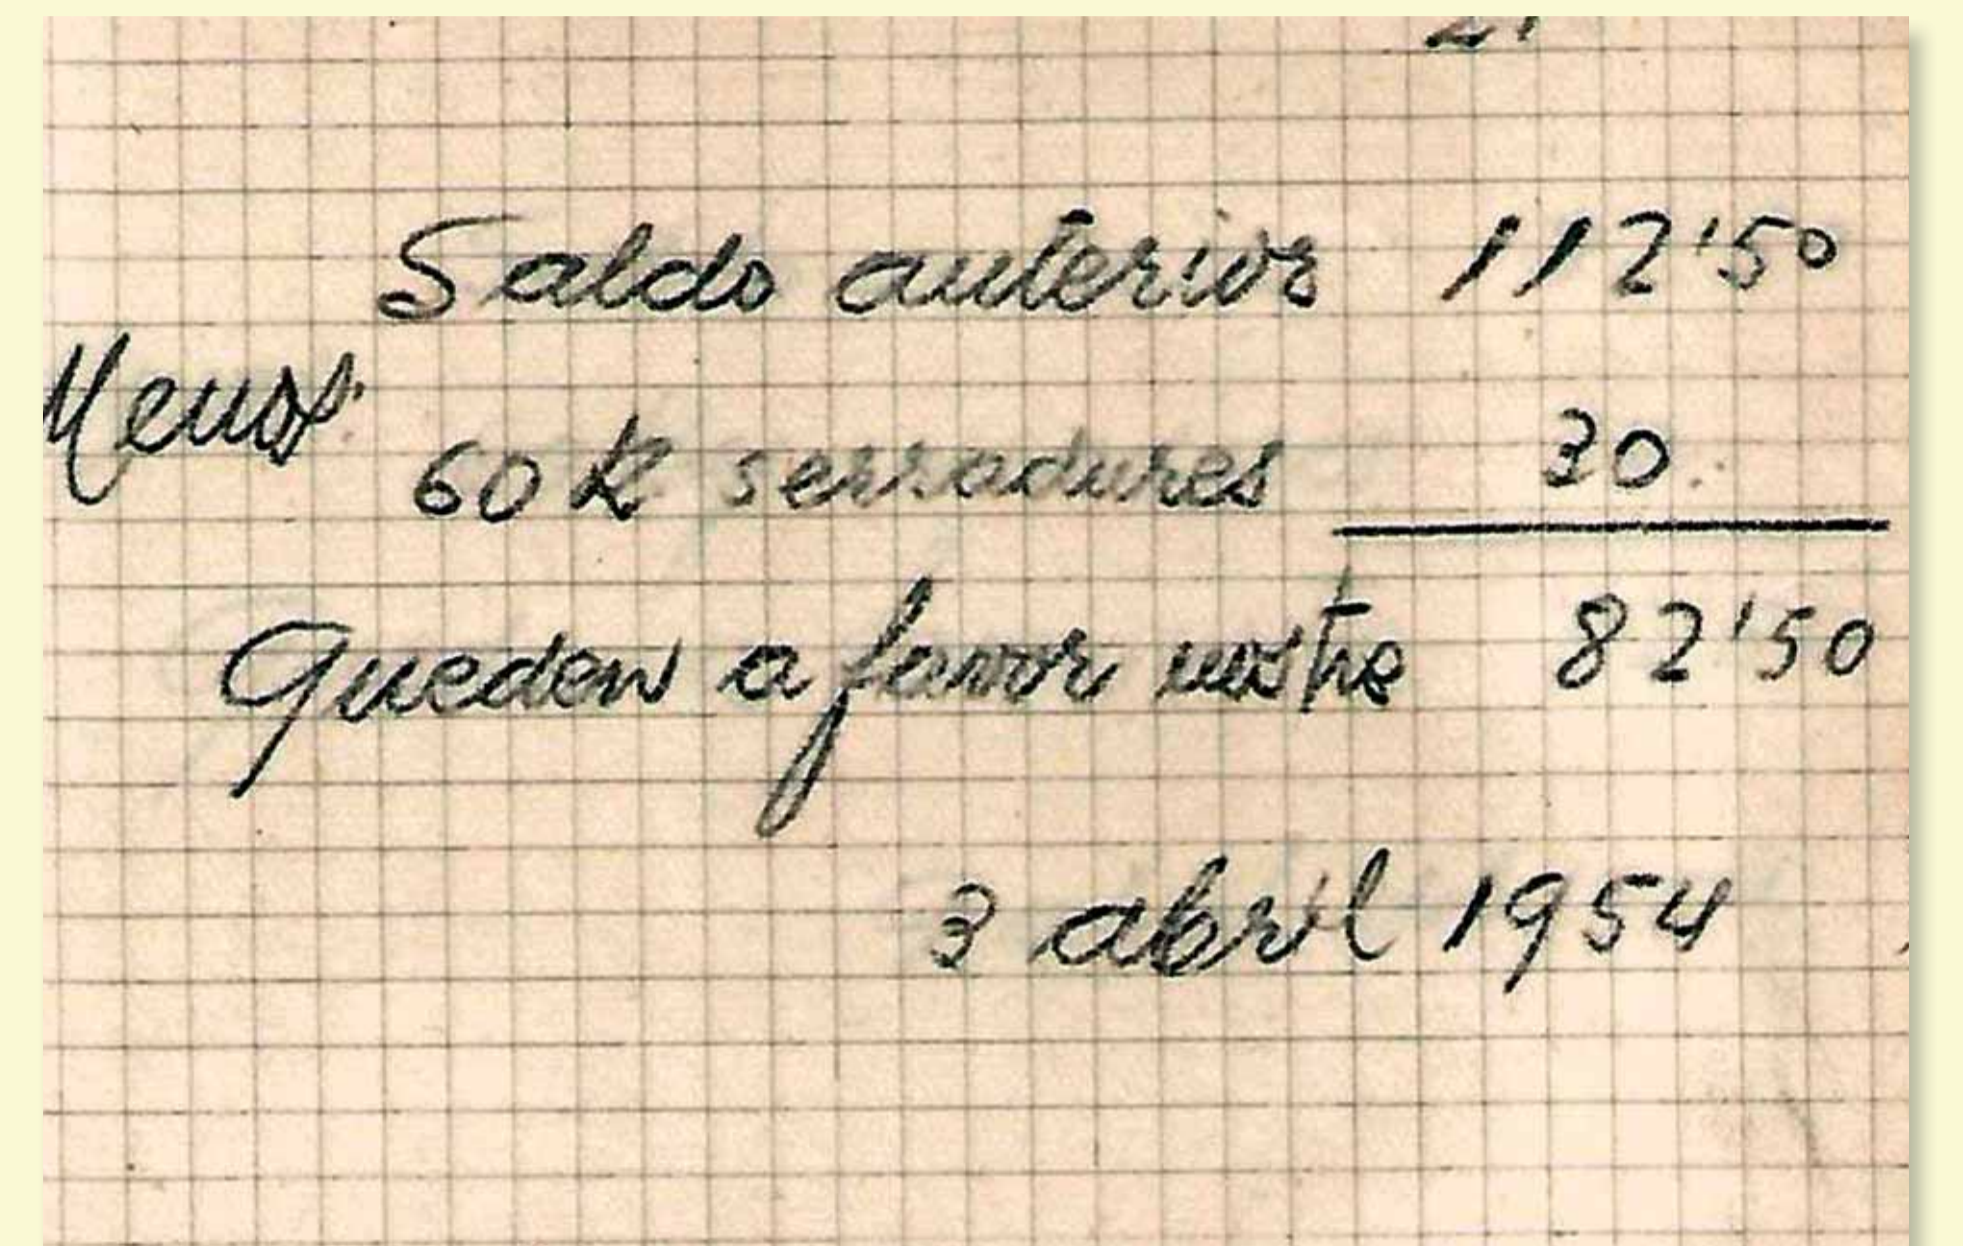 Saldo anterior 112'50
Menos
60 k serradures 30
Queden a favor nostre 82'50
3 abril 1954